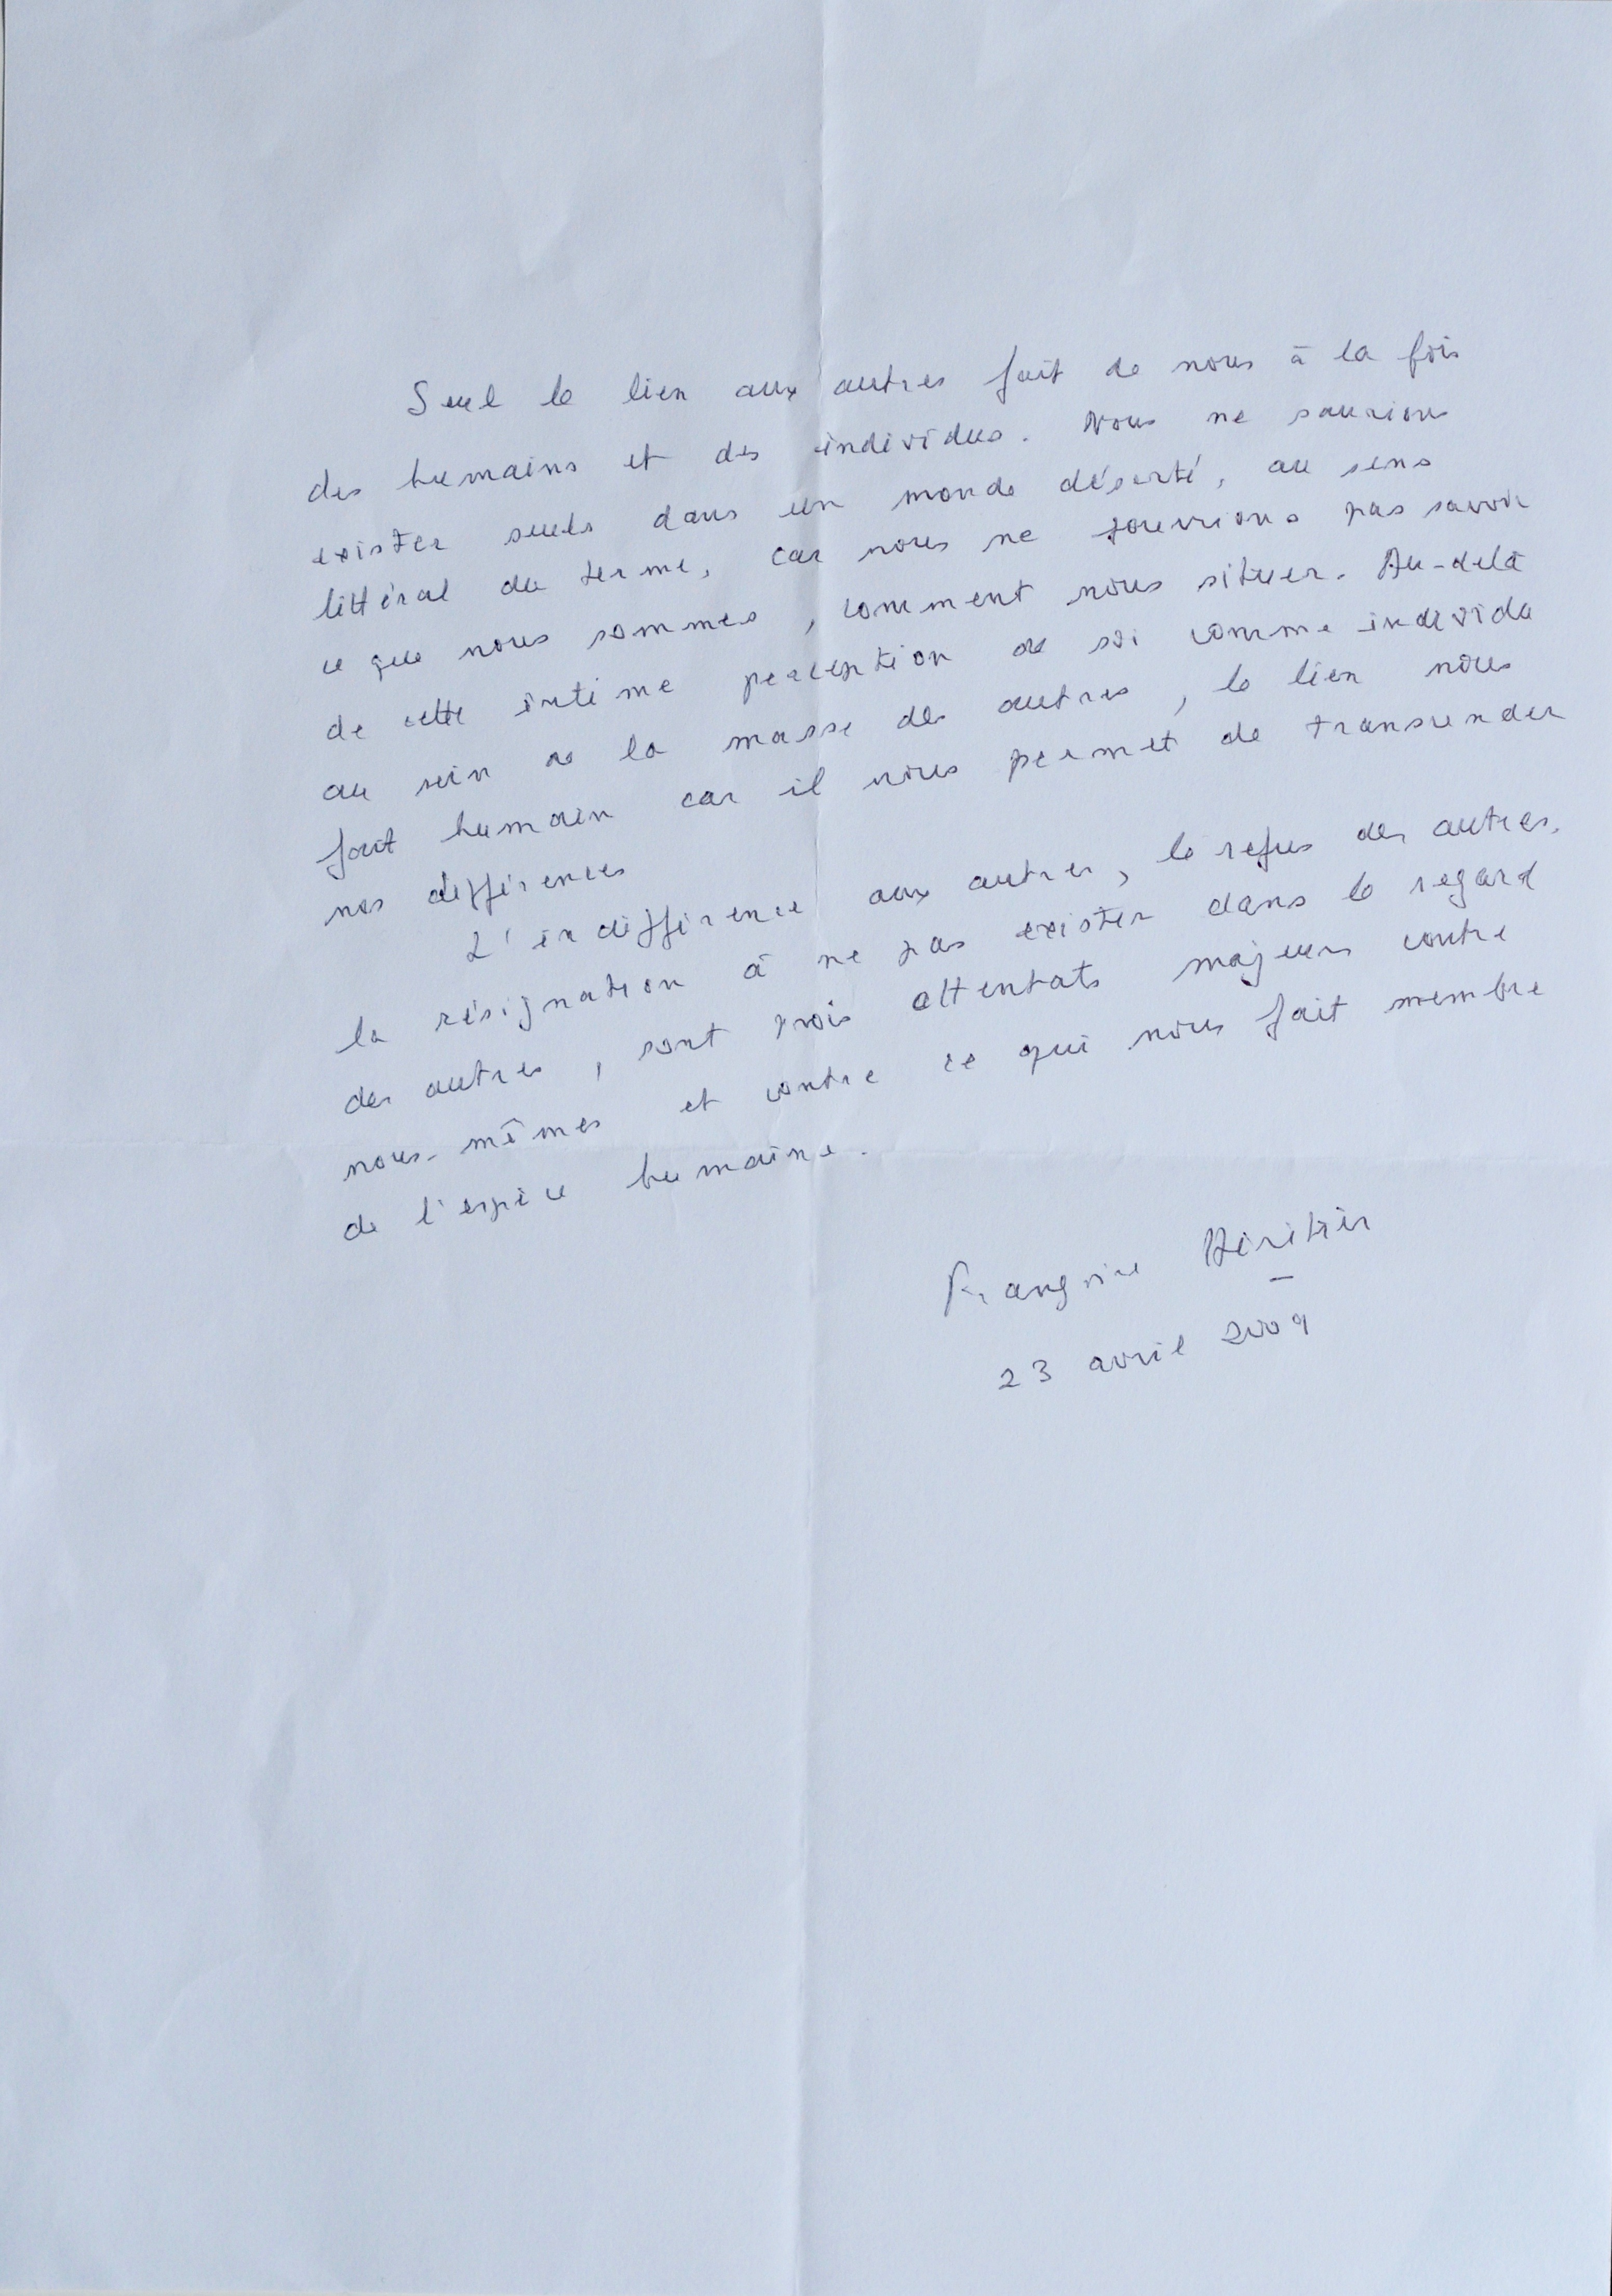 Seul le lien aux autres fait de nous à la fois
des humains et des individus. Nous ne saurions
exister seuls dans un monde déserté, au sens
littéral du terme, car nous ne pourrions pas savoir
ce que nous sommes, comment nous situer. Au-delà
de cette intime perception de soi comme individu
au sein de la masse des autres, le lien nous
fait humain car il nous permet de transcender
nos différences
L'indifférence aux autres, le refus des autres,
la résignation à ne pas exister dans le regard
des autres, sont trois attentats majeurs contre
nous-mêmes et contre ce qui nous fait membre
de l'espèce humaine.
Françoise Héritier
23 avril 2009